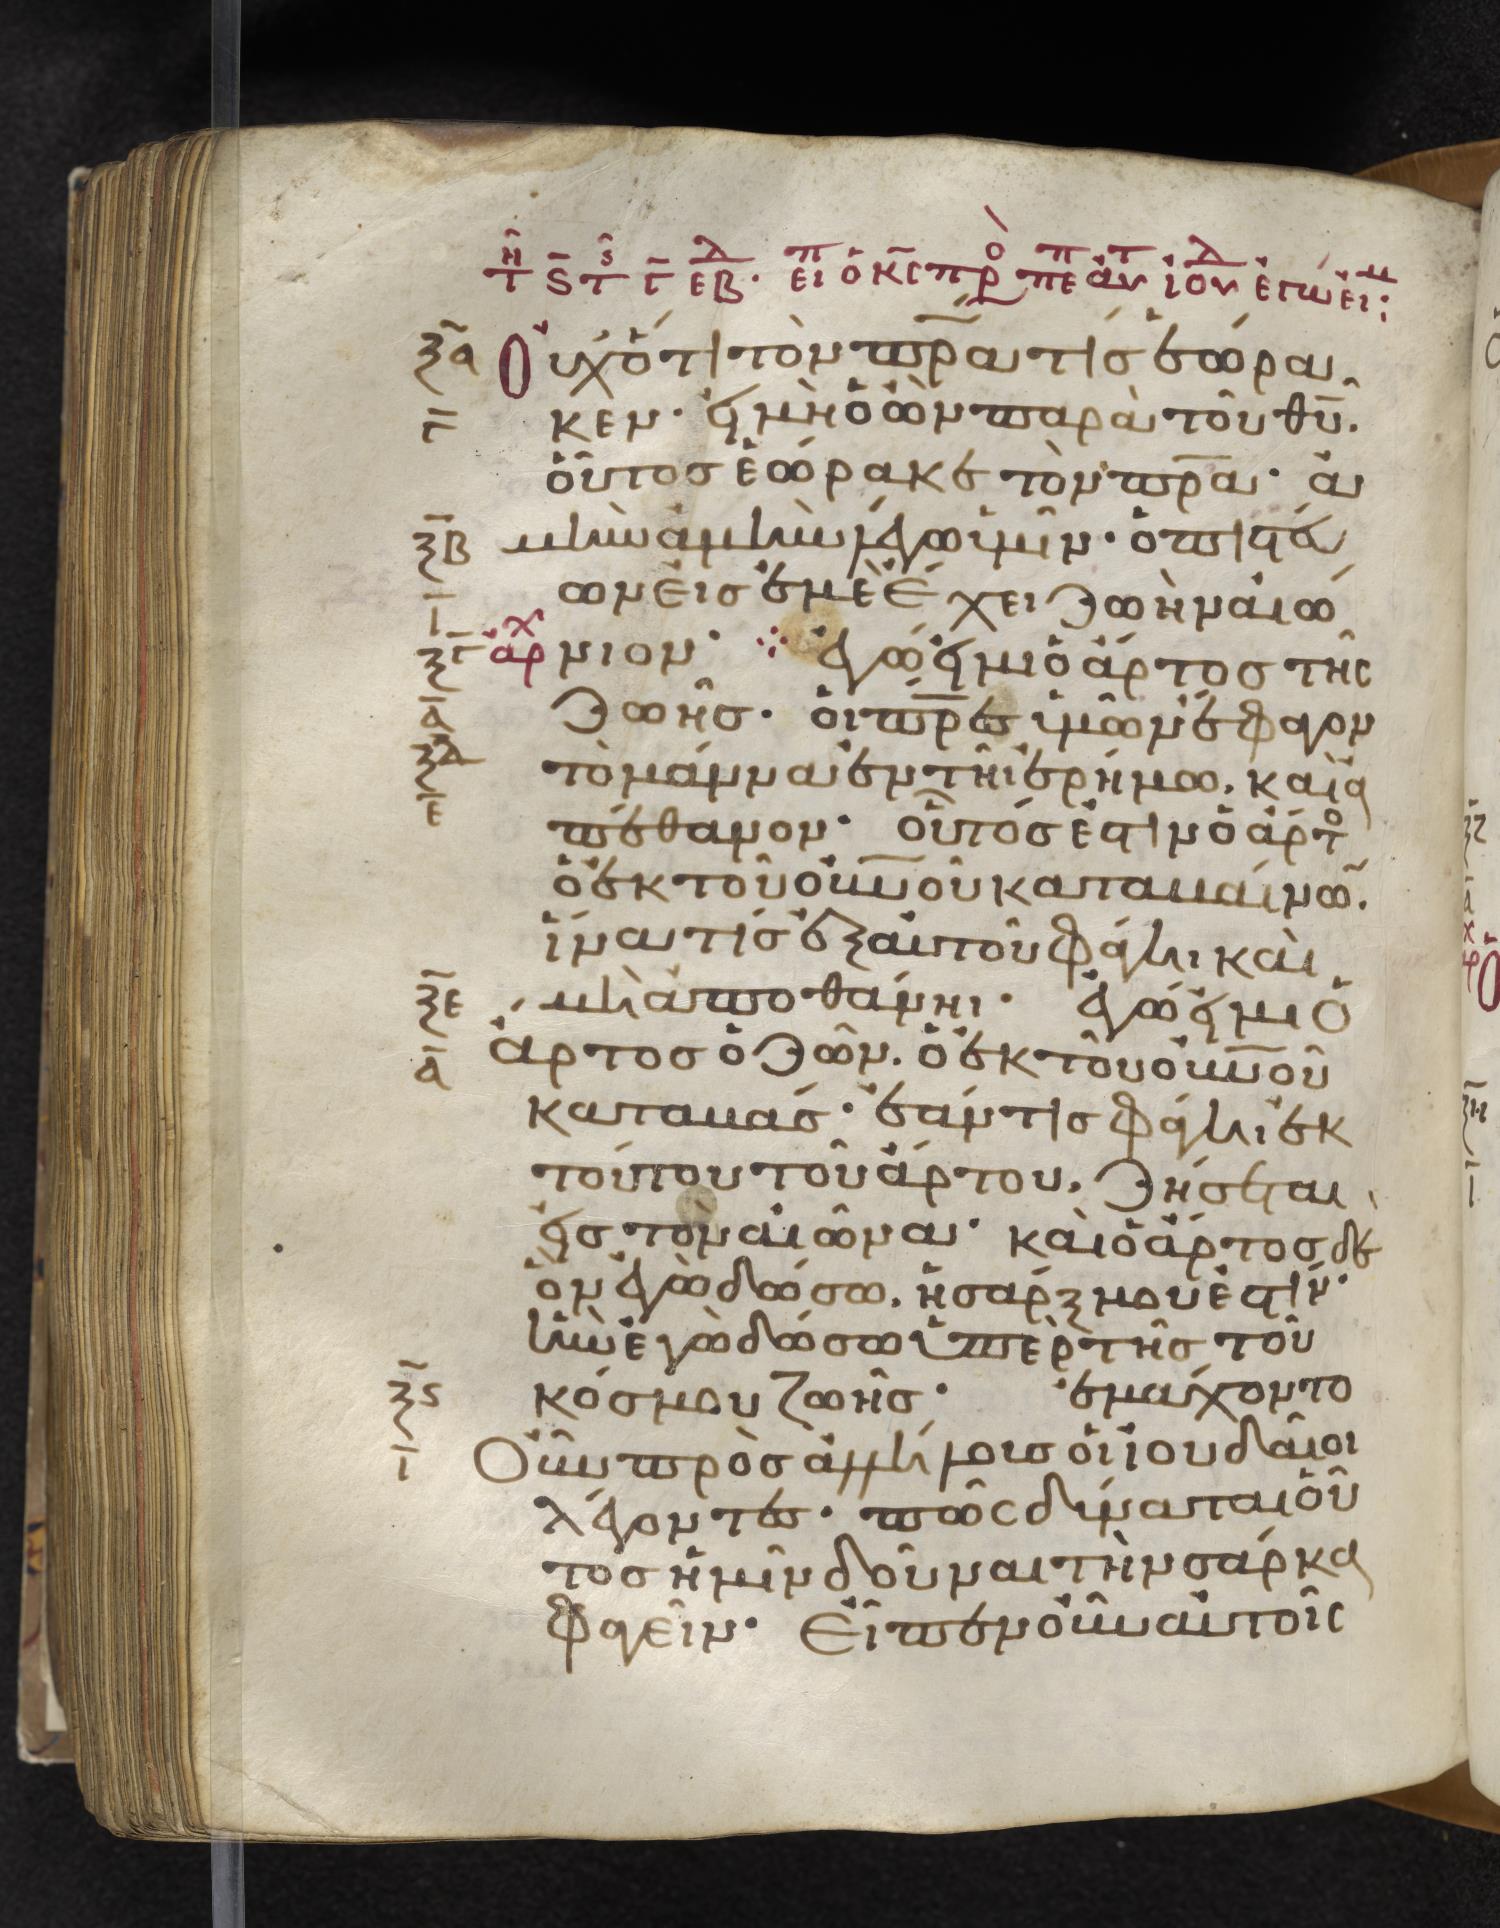 ξα Οὐχ ὅτι τὸν πρ̅α τὶσ ἑώρα
π κεν· εἰ μὴ ὁ ὢν παρὰ τοῦ θυ̅.
οὗτοσ ἑώρακε τὸν πρ̅α· ἀ
ξβ μὴν ἀμὴν λέγω ὑμῖν· ὁ πιστεύ
ι ων εἰσ ἐμὲ ἔχει ζωὴν αἰώ
ξγ ἀρχ νιον· ἐγώ εἰμι ὁ ἄρτοσ τῆς
α ζωῆσ· οἱ πρ̅ες ὑμῶν ἔφαγον
ξδ τὸ μάννα ἐν τῆι ἐρήμω. καὶ ἀ
ε πέθανον· οὗτόσ ἐστιν ὁ ἄρτο
ὁ ἐκ τοῦ οὐν̅οῦ καταβαίνων.
ἵνα τίσ ἐξ αὐτοῦ φάγηι καὶ
ξε μὴ ἀποθάνηι· ἐγώ εἰμι ὁ
α ἄρτοσ ὁ ζῶν. ὁ ἐκ τοῦ οὐν̅οῦ
καταβάσ· ἐάν τισ φάγηι ἐκ
τούτου τοῦ ἄρτου. ζήσεται
εἰσ τὸν αἰῶνα· καὶ ὁ ἄρτοσ δὲ
ὃν ἐγὼ δώσω. ἡ σάρξ μου ἐστίν·
ἣν ἐγὼ δώσω ὑπὲρ τῆσ τοῦ
ξς κόσμου ζωῆσ· ἐμάχοντο
ι Οὖν πρὸσ ἀλλήλουσ οἱ ἰουδαῖοι
λέγοντες· πῶς δύναται οὗ
τοσ ἡμῖν δοῦναι τὴν σάρκα
φαγεῖν· Εἶπεν οὖν αὐτοῖς